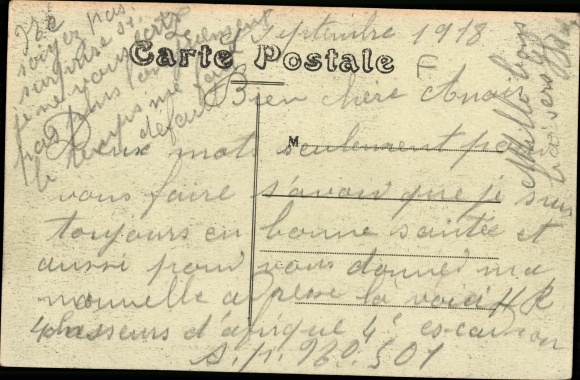 Septembre 1918
Carte Postale
F
Bien chère Anaïs
Deux mots seulement pour
vous faire savoir que je suis
toujours en bonne santée et
aussi pour vous donner ma
nouvelle adresse la voici
4 chasseurs d'afrique 4e escadron
s.p. 960.501
Ne
soyez pas
surprise si
je ne vous écris
pas plus longuement
le temps me fait
défaut
Mille bons
baisers
M